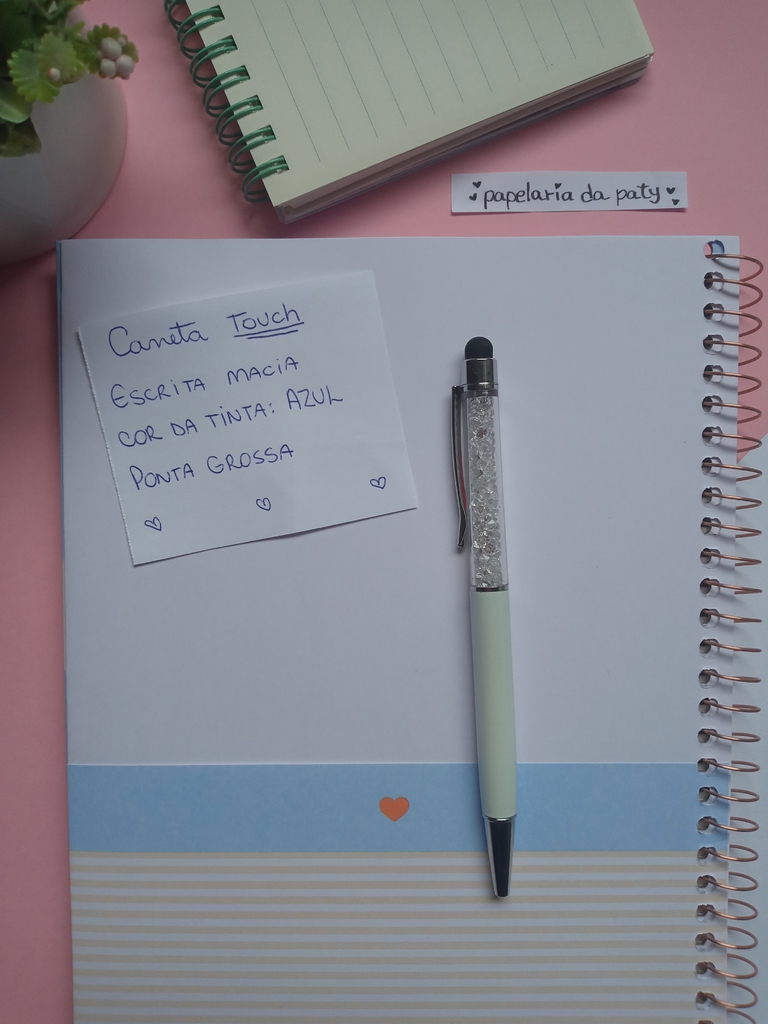 papelaria da paty
Caneta Touch
ESCRITA MACIA
COR DA TINTA: AZUL
PONTA GROSSA